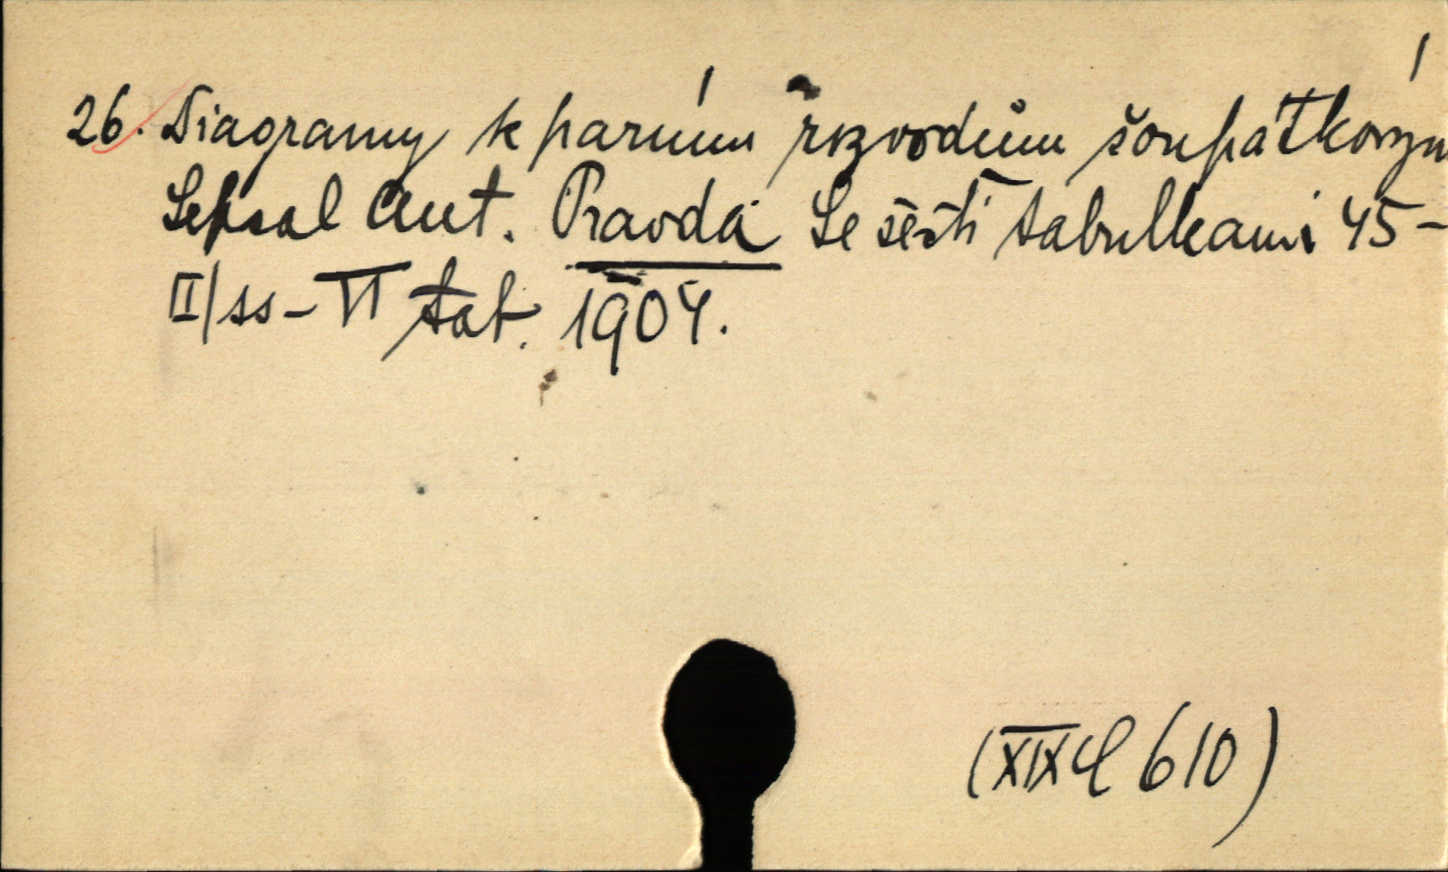 26. Diagramy k parním rozvodům šoupátkovým
Sepsal Ant. Pravda Se šesti tabulkami 45-
II/ss-VI tab. 1904.
(XIX C 610)